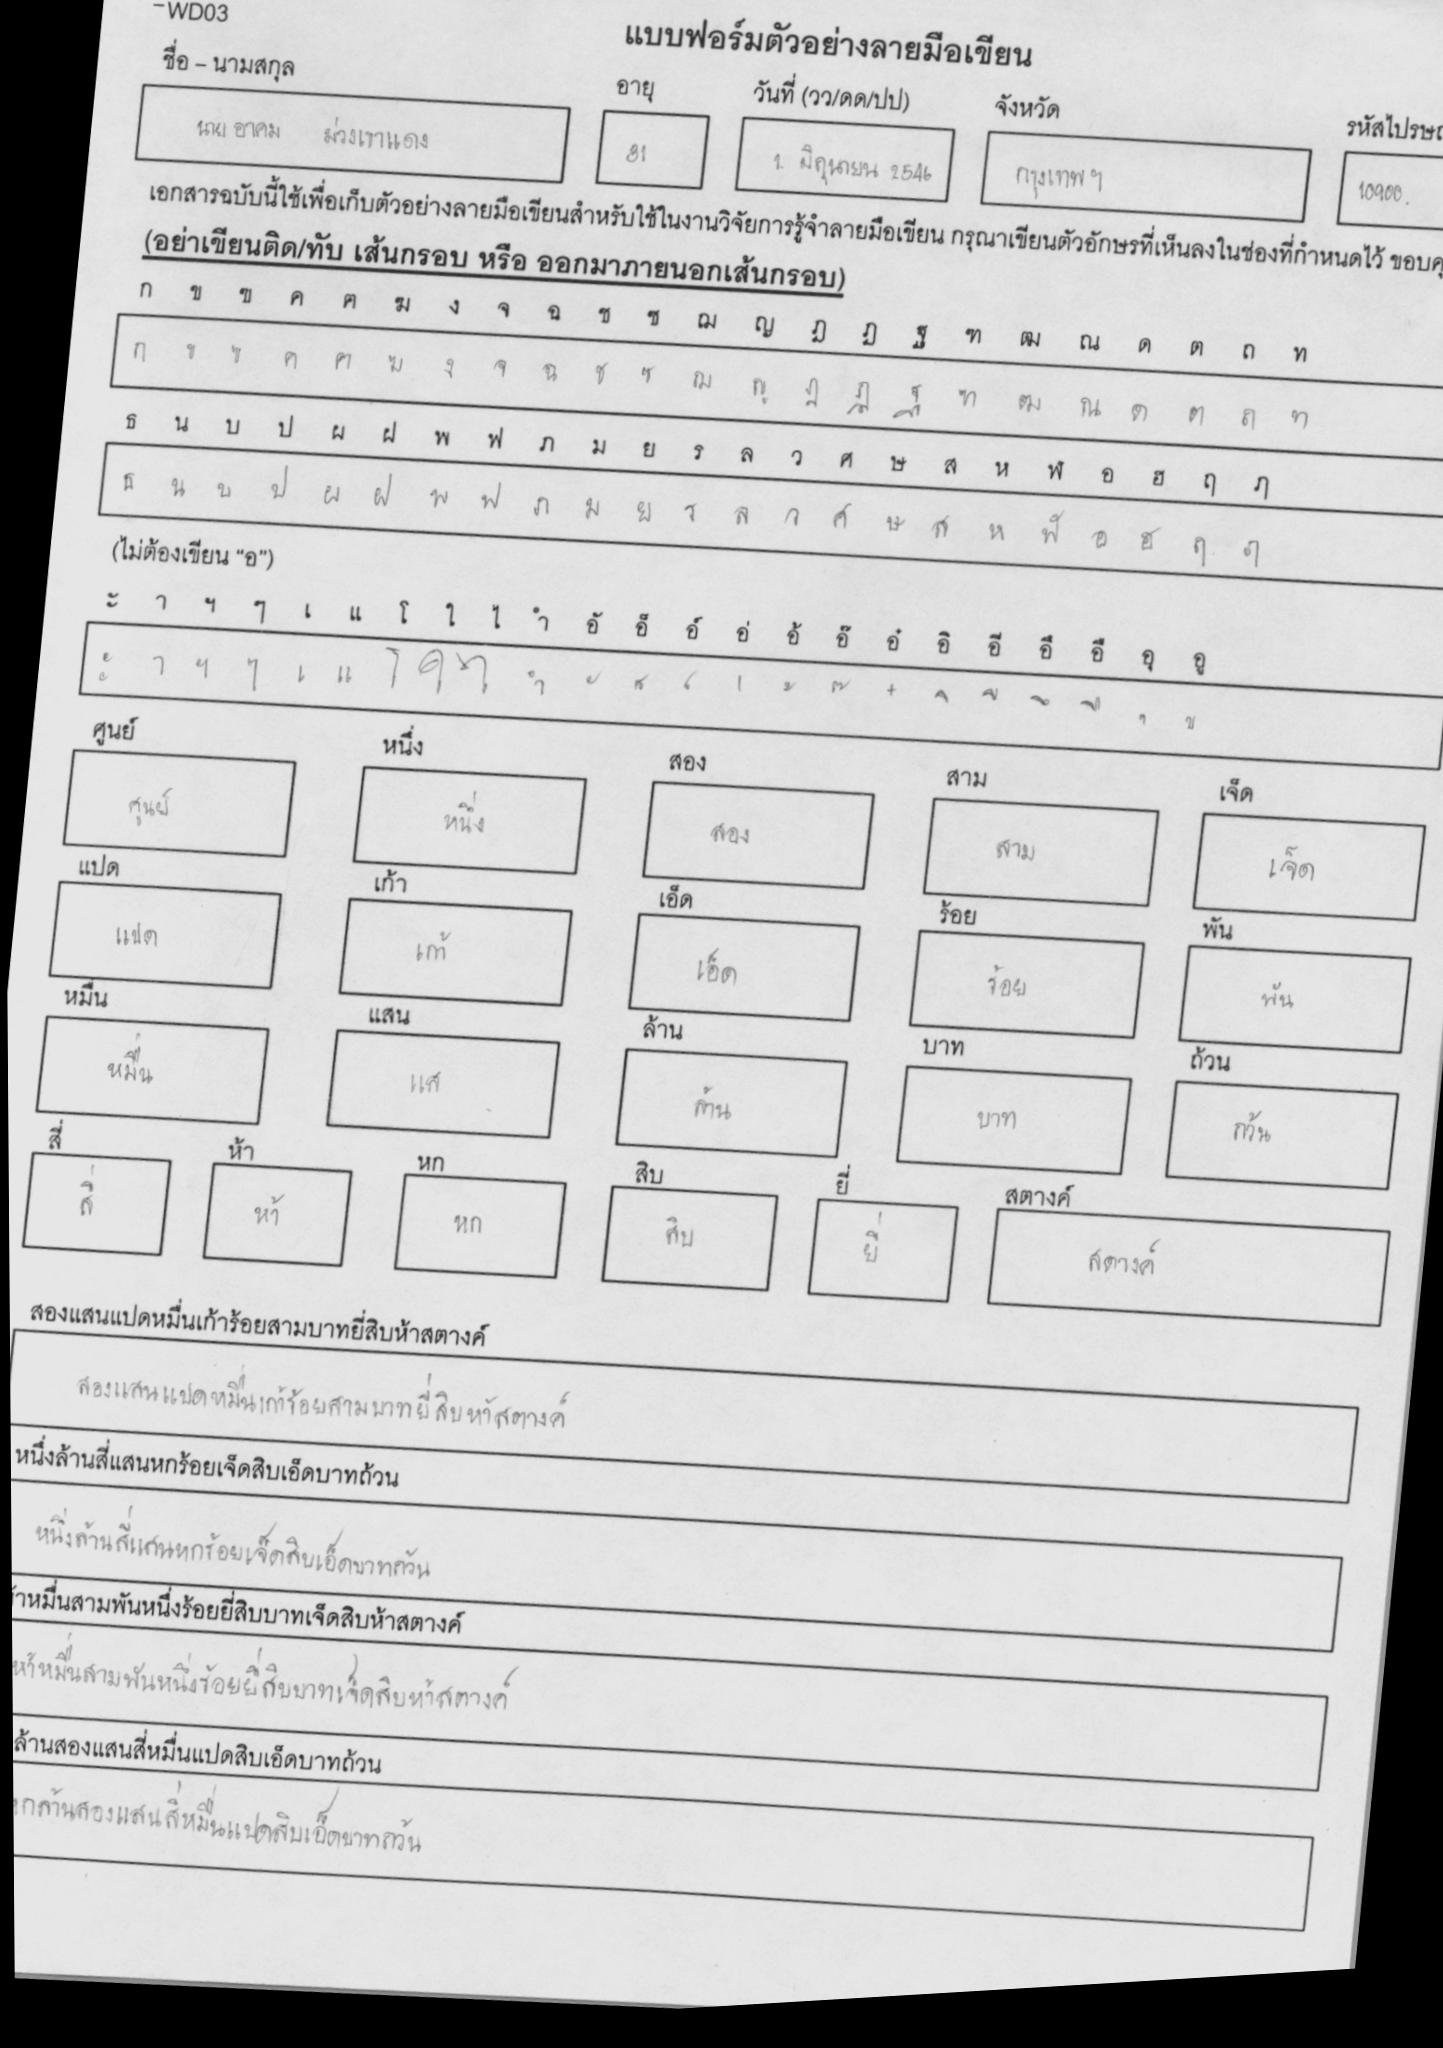 -WD03
แบบฟอร์มตัวอย่างลายมือเขียน
ชื่อ – นามสกุล อายุ วันที่ (วว/ดด/ปป) จังหวัด รหัสไปรษณ
นาย อาคม ม่วงเขาแดง 31 1. มิถุนายน 2546 กรุงเทพฯ 10900.
เอกสารฉบับนี้ใช้เพื่อเก็บตัวอย่างลายมือเขียนสำหรับใช้ในงานวิจัยการรู้จำลายมือเขียน กรุณาเขียนตัวอักษรที่เห็นลงในช่องที่กำหนดไว้ ขอบคุ
(อย่าเขียนติด/ทับ เส้นกรอบ หรือ ออกมาภายนอกเส้นกรอบ)
ก ข ฃ ค ฅ ฆ ง จ ฉ ช ซ ฌ ญ ฎ ฏ ฐ ฑ ฒ ณ ด ต ถ ท
ก ข ฃ ค ฅ ฆ ง จ ฉ ช ซ ฌ ญ ฎ ฏ ฐ ฑ ฒ ณ ด ต ถ ท
ธ น บ ป ผ ฝ พ ฟ ภ ม ย ร ล ว ศ ษ ส ห ฬ อ ฮ ฤ ฦ
ธ น บ ป ผ ฝ พ ฟ ภ ม ย ร ล ว ศ ษ ส ห ฬ อ ฮ ฤ ฦ
(ไม่ต้องเขียน “อ”)
ะ า ฯ ๆ เ แ โ ใ ไ ำ อั อ็ อ์ อ่ อ้ อ๊ อ๋ อิ อี อึ อื อุ อู
ะ า ฯ ๆ เ แ โ ใ ไ ำ ั ็ ์ ่ ้ ๊ ๋ ิ ี ึ ื ุ ู
ศูนย์ หนึ่ง สอง สาม เจ็ด
ศูนย์ หนึ่ง สอง สาม เจ็ด
แปด เก้า เอ็ด ร้อย พัน
แปด เก้า เอ็ด ร้อย พัน
หมื่น แสน ล้าน บาท ถ้วน
หมื่น แส ล้าน บาท ถ้วน
สี่ ห้า หก สิบ ยี่ สตางค์
สี่ ห้า หก สิบ ยี่ สตางค์
สองแสนแปดหมื่นเก้าร้อยสามบาทยี่สิบห้าสตางค์
สองแสนแปดหมื่นเก้าร้อยสามบาทยี่สิบห้าสตางค์
หนึ่งล้านสี่แสนหกร้อยเจ็ดสิบเอ็ดบาทถ้วน
หนึ่งล้านสี่แสนหกร้อยเจ็ดสิบเอ็ดบาทถ้วน
้าหมื่นสามพันหนึ่งร้อยยี่สิบบาทเจ็ดสิบห้าสตางค์
ห้าหมื่นสามพันหนึ่งร้อยยี่สิบบาทเจ็ดสิบห้าสตางค์
ล้านสองแสนสี่หมื่นแปดสิบเอ็ดบาทถ้วน
หกล้านสองแสนสี่หมื่นแปดสิบเอ็ดบาทถ้วน